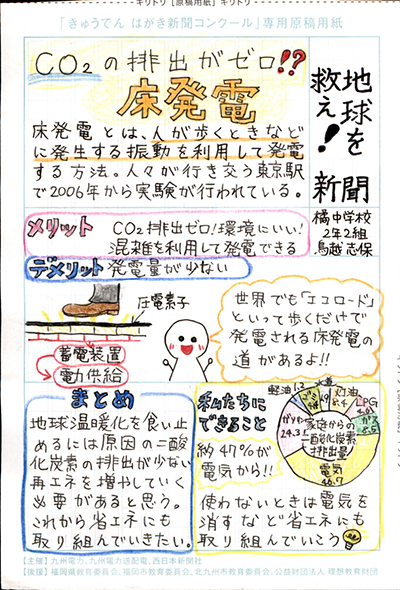 キリトリ【原稿用紙】キリトリ
「きゅうでん はがき新聞コンクール」専用原稿用紙
地球を
救え!
新聞
橘中学校
2年2組
鳥越 志保
CO2の排出がゼロ!?
床発電
床発電とは、人が歩くときなど
に発生する振動を利用して発電
する方法。人々が行き交う東京駅
で2006年から実験が行われている。
メリット
CO2排出ゼロ!環境にいい!
混雑を利用して発電できる
デメリット 発電量が少ない
圧電素子
蓄電装置
電力供給
世界でも「エコロード」
といって歩くだけで
発電される床発電の
道があるよ!!
まとめ
地球温暖化を食い止
めるには原因の二酸
化炭素の排出が少ない
再エネを増やしていく
必要があると思う。
これから省エネにも
取り組んでいきたい。
私たちに
できること
約47%が
電気から!!
軽油 1.2
灯油
LPG
ガソリン
24.3
家庭からの
二酸化炭素
排出量
電気
46.7
使わないときは電気を
消すなど省エネにも
取り組んでいこう
【主催】九州電力、九州電力送配電、西日本新聞社
【後援】福岡県教育委員会、福岡市教育委員会、北九州市教育委員会、公益財団法人 理想教育財団